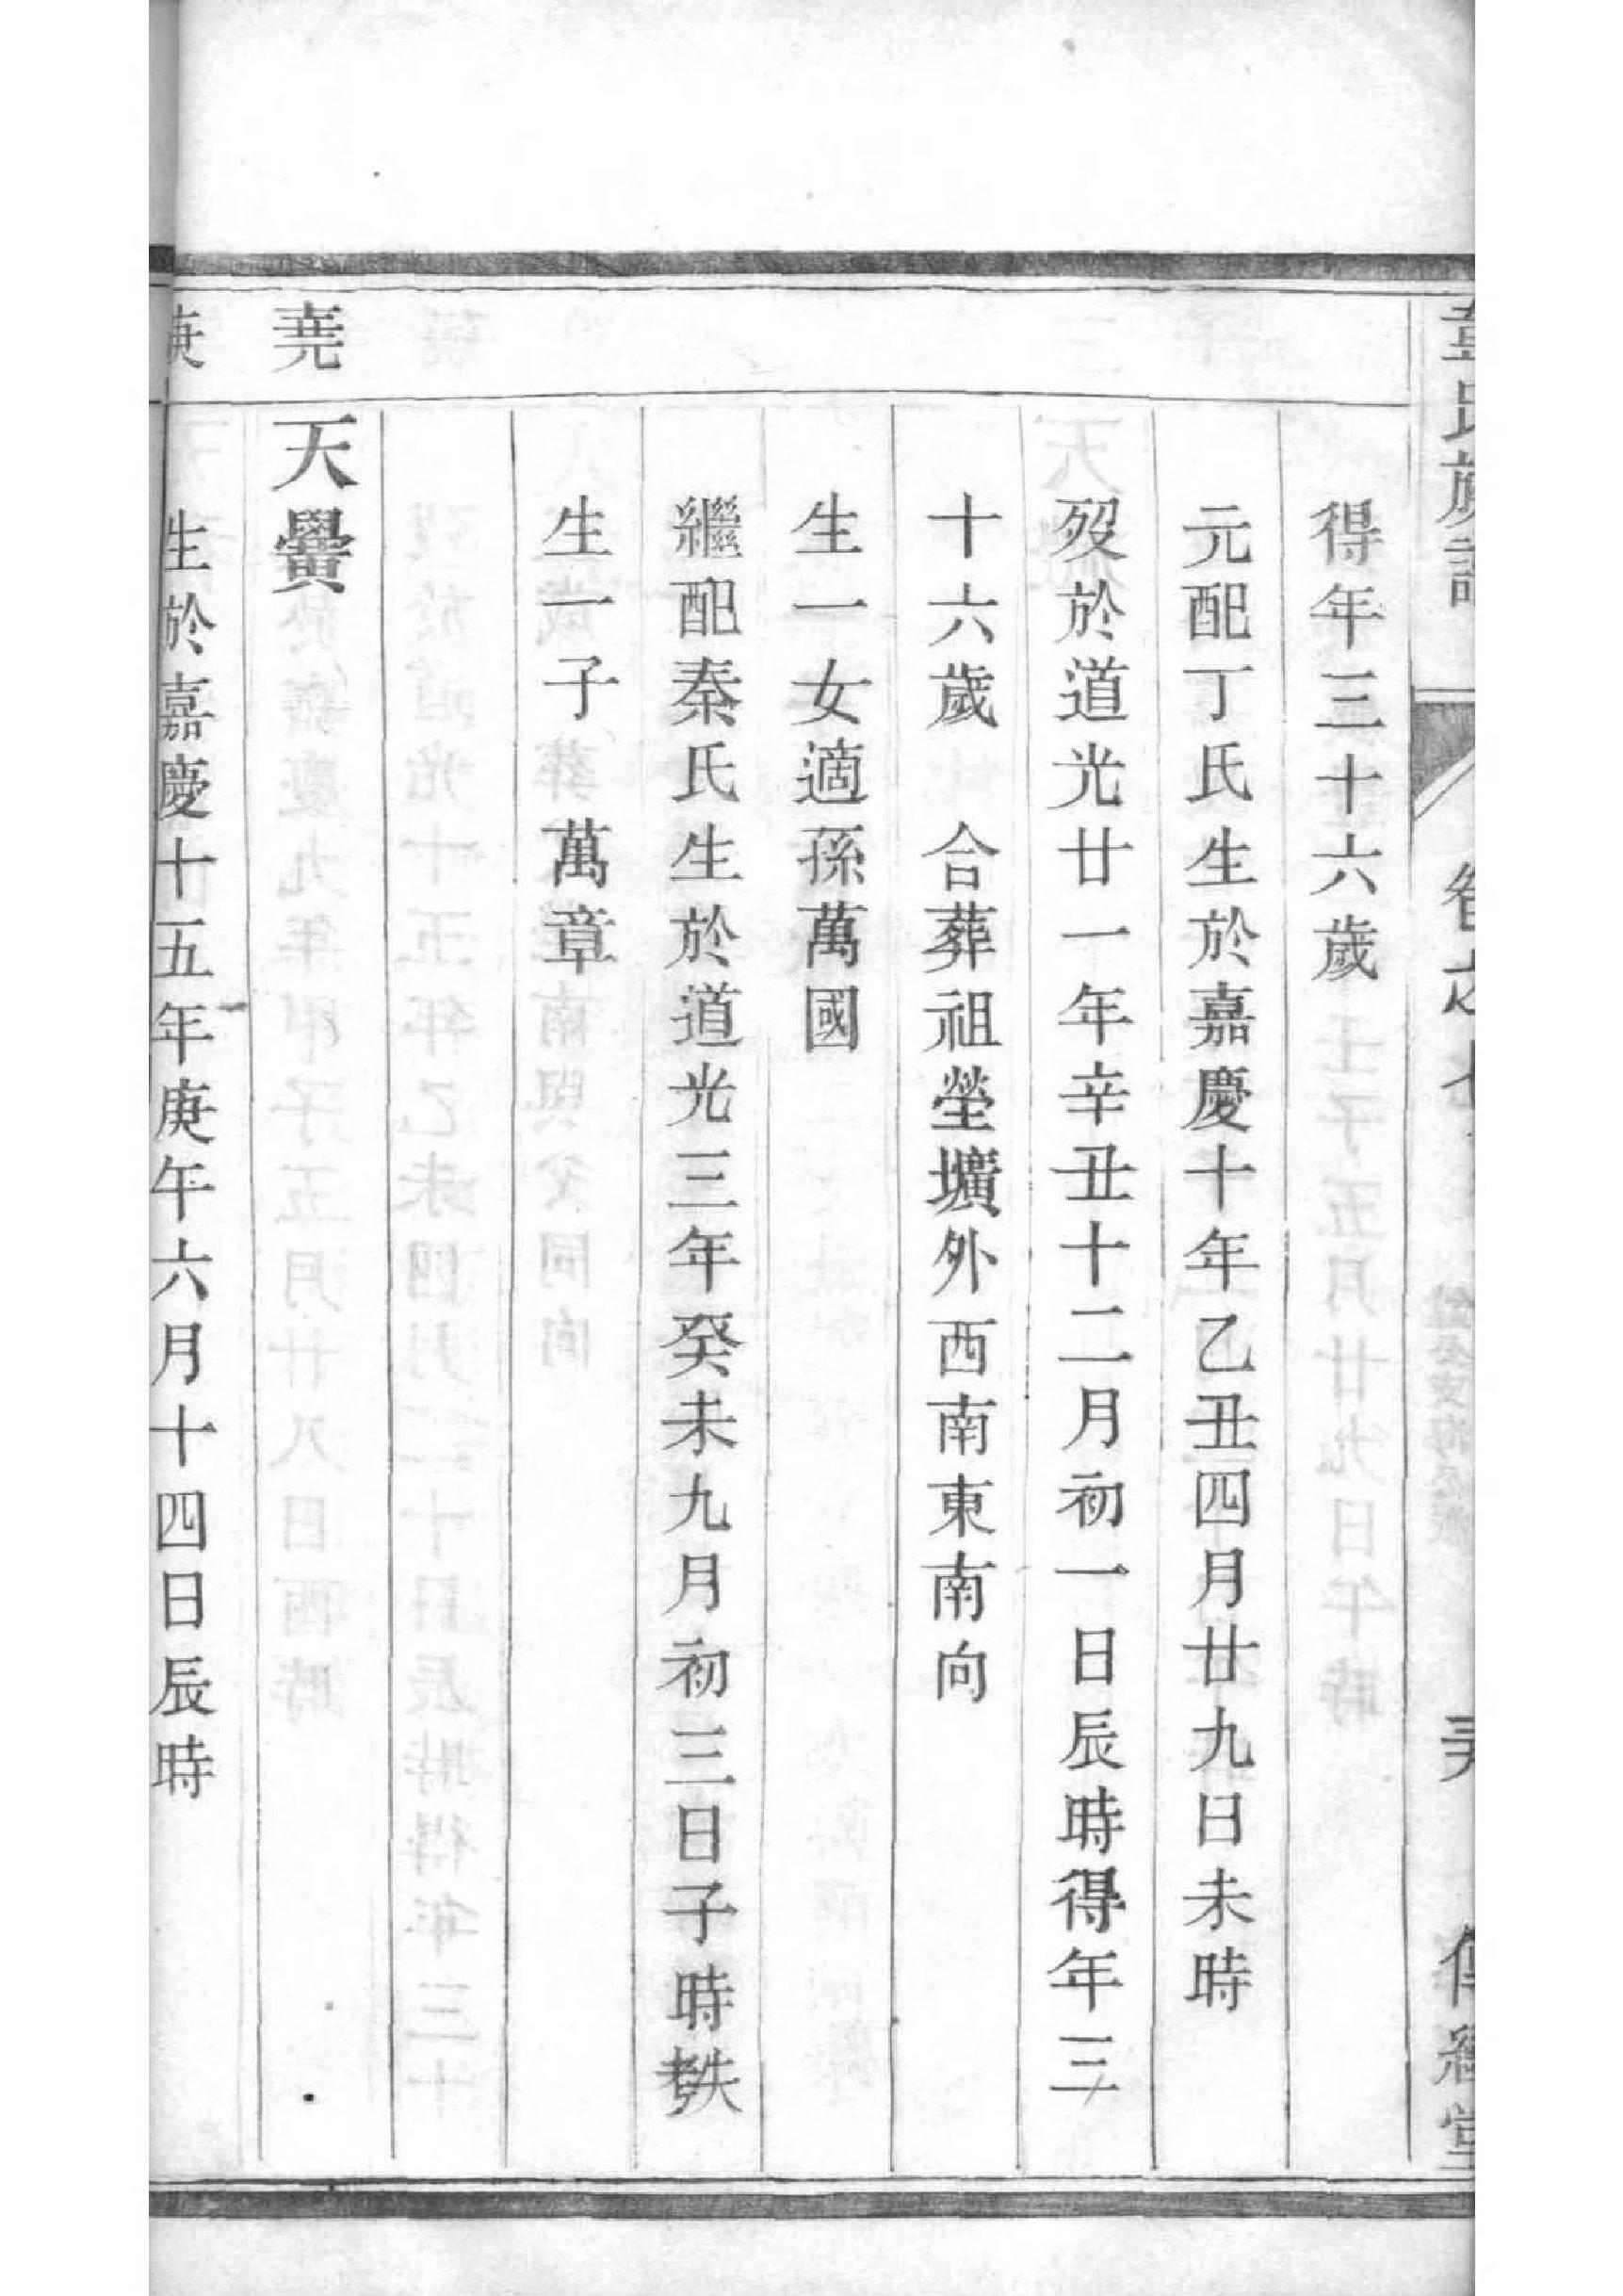 氏族譜
卷之七
堂
得年三十六歲
元配丁氏生於嘉慶十年乙丑四月廿九日未時
歿於道光廿一年辛丑十二月初一日辰時得年三
十六歲　合葬祖塋壙外西南東南向
生一女適孫萬國
繼配秦氏生於道光三年癸未九月初三日子時
生一子　萬章
堯
天黌
庚
生於嘉慶十五年庚午六月十四日辰時